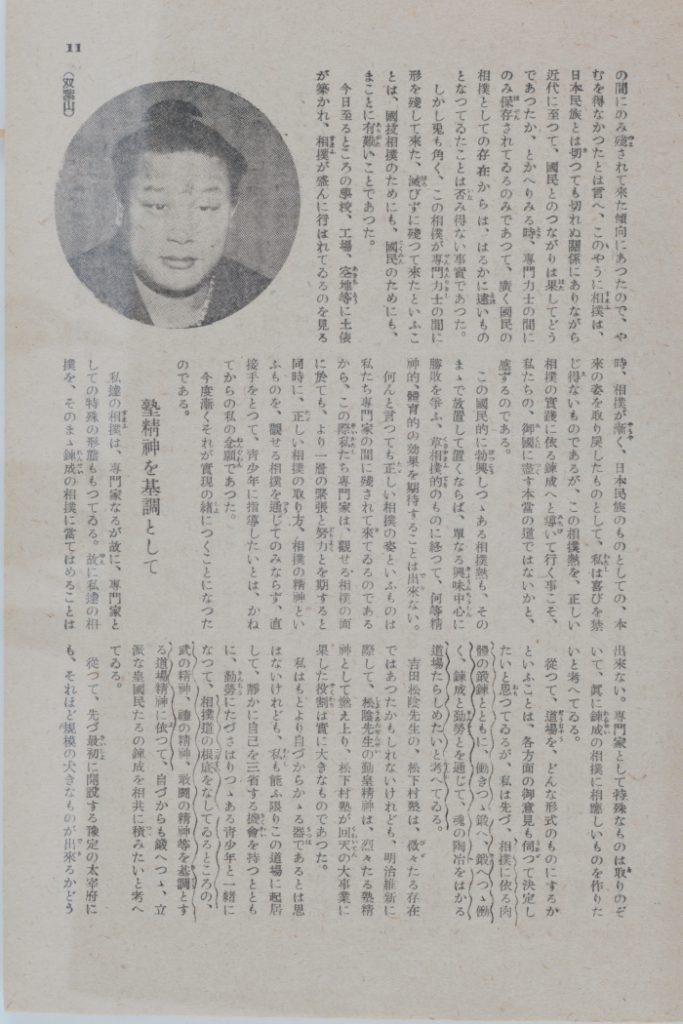 11
の間にのみ殘されて來た傾向にあつたので、や
むを得なかつたとは言へ、このやうに相撲は、
日本民族とは切つても切れぬ關係にありながら
近代に至つて、國民とのつながりは果してどう
であつたか、とかへりみる時、專門力士の間に
のみ保存されてゐるのみであつて、廣く國民の
相撲としての存在からは、はるかに遠いもの
となつてゐたことは否み得ない事實であつた。
しかし兎も角く、この相撲が專門力士の間に
形を殘して來た、滅びずに殘つて來たといふこ
とは、國技相撲のためにも、國民のためにも、
まことに有難いことであつた。
今日至るところの學校、工場、空地等に土俵
が築かれ、相撲が盛んに行はれてゐるのを見る
(双葉山)
時、相撲が漸く、日本民族のものとしての、本
來の姿を取り戻したものとして、私は喜びを禁
じ得ないものであるが、この相撲熱を、正しい
相撲の實踐に依る錬成へと導いて行く事こそ、
私たちの、御國に盡す本當の道ではないかと、
感ずるのである。
この國民的に勃興しつゝある相撲熱も、その
まゝで放置して置くならば、單なる興味中心に
勝敗を爭ふ、草相撲的のものに終つて、何等精
神的、體育的の効果を期待することは出來ない。
何んと言つても正しい相撲の姿といふものは
私たち專門家の間に殘されて來てゐるのである
から、この際私たち專門家は、觀せる相撲の面
に於ても、より一層の緊張と努力とを期すると
同時に、正しい相撲の取り方、相撲の精神とい
ふものを、觀せる相撲を通じてのみならず、直
接手をとつて、青少年に指導したいとは、かね
てからの私の念願であつた。
今度漸くそれが實現の緒につくことになつた
のである。
塾精神を基調として
私達の相撲は、專門家なるが故に、專門家と
しての特殊の形態ももつてゐる。故に私達の相
撲を、そのまゝ錬成の相撲に當てはめることは
出來ない。專門家として特殊なものは取りのぞ
いて、眞に錬成の相撲に相應しいものを作りた
いと考へてゐる。
從つて、道場を、どんな形式のものにするか
といふことは、各方面の御意見も伺つて決定し
たいと思つてゐるが、私は先づ、相撲に依る肉
體の鍛錬とともに、働きつゝ鍛へ、鍛へつゝ働
く、錬成と勤勞とを通じて、魂の陶冶をはかる
道場たらしめたいと考へてゐる。
吉田松陰先生の、松下村塾は、微々たる存在
ではあつたかもしれないけれども、明治維新に
際して、松陰先生の勤皇精神は、烈々たる塾精
神として燃え上り、松下村塾が回天の大事業に
果した役割は實に大きなものであつた。
私はもとより自づからかゝる器であるとは思
はないけれども、私も能ふ限りこの道場に起居
して、靜かに自己を三省する機會を持つととも
に、勤勞にたづさはりつゝある青少年と一緒に
なつて、相撲道の根底をなしてゐるところの、
武の精神、禮の精神、敢鬪の精神等を基調とす
る道場精神に依つて、自づからも鍛へつゝ、立
派な皇國民たるの錬成を相共に積みたいと考へ
てゐる。
從つて、先づ最初に開設する豫定の太宰府に
も、それほど規模の大きなものが出來るかどう